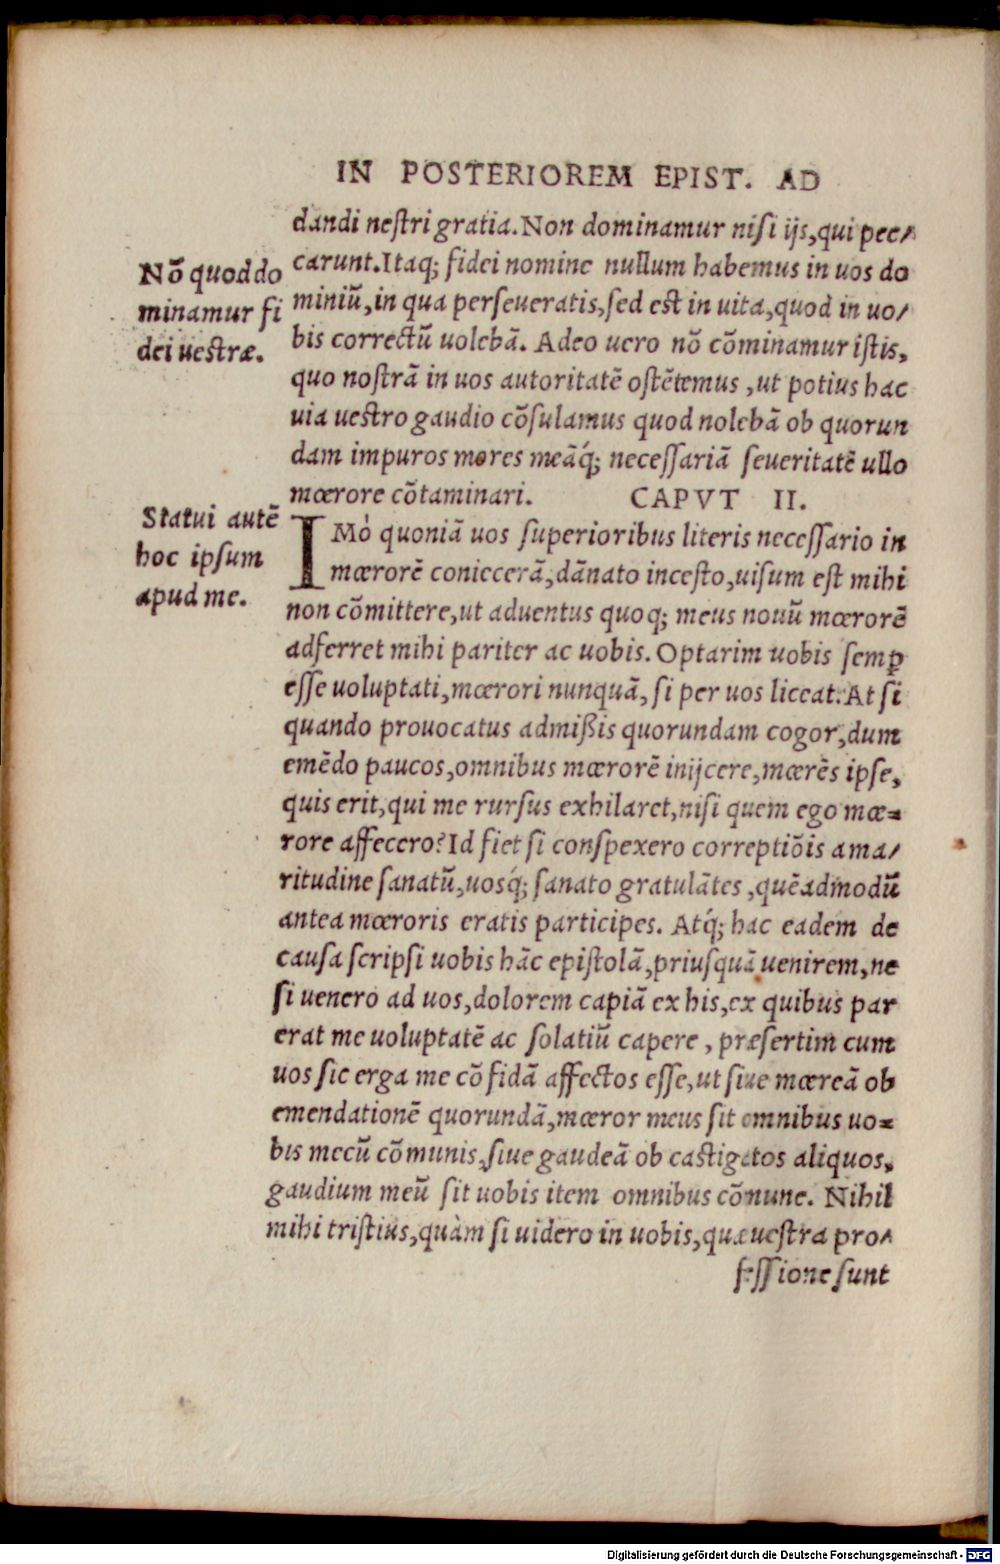 IN POSTERIOREM EPIST. AD
dandi neſtri gratia. Non dominamur niſi ijs, qui pec/
carunt. Itaq; fidei nomine nullum habemus in uos do
miniũ, in qua perſeueratis, ſed est in uita, quod in uo/
bis correctũ uolebã. Adeo uero nõ cõminamur iſtis,
quo noſtrã in uos autoritatẽ oſtẽtemus, ut potius hac
uia ueſtro gaudio cõſulamus quod nolebã ob quorun
dam impuros mores meãq́; neceſſariã ſeueritatẽ ullo
mœrore cõtaminari.
CAPVT II.
IMò quoniã uos ſuperioribus literis neceſſario in
mœrorẽ coniecerã, dãnato inceſto, uiſum eſt mihi
non cõmittere, ut aduentus quoq; meus nouũ mœrorẽ
adferret mihi pariter ac uobis. Optarim uobis ſemꝑ
eſſe uoluptati, mœrori nunquã, ſi per uos liceat. At ſi
quando prouocatus admißis quorundam cogor, dum
emẽdo paucos, omnibus mœrorẽ inijcere, mœrẽs ipſe,
quis erit, qui me rurſus exhilaret, niſi quem ego mœ=
rore affecero? Id fiet ſi conſpexero correptiõis ama/
ritudine ſanatũ, uosq́; ſanato gratulãtes, quẽadmodũ
antea mœroris eratis participes. Atq́; hac eadem de
cauſa ſcripſi uobis hãc epiſtolã, priuſquã uenirem, ne
ſi uenero ad uos, dolorem capiã ex his, ex quibus par
erat me uoluptatẽ ac ſolatiũ capere, præſertim cum
uos ſic erga me cõfidã affectos eſſe, ut ſiue mœreã ob
emendationẽ quorundã, mœror meus ſit omnibus uo=
bis mecũ cõmunis, ſiue gaudeã ob caſtigatos aliquos,
gaudium meũ ſit uobis item omnibus cõmune. Nihil
mihi triſtius, quàm ſi uidero in uobis, quæ ueſtra pro/
feſſione ſunt
Nõ quod do
minamur fi
dei ueſtræ.
Statui autẽ
hoc ipſum
apud me.
Digitalisierung gefördert durch die Deutsche Forschungsgemeinschaft - DFG